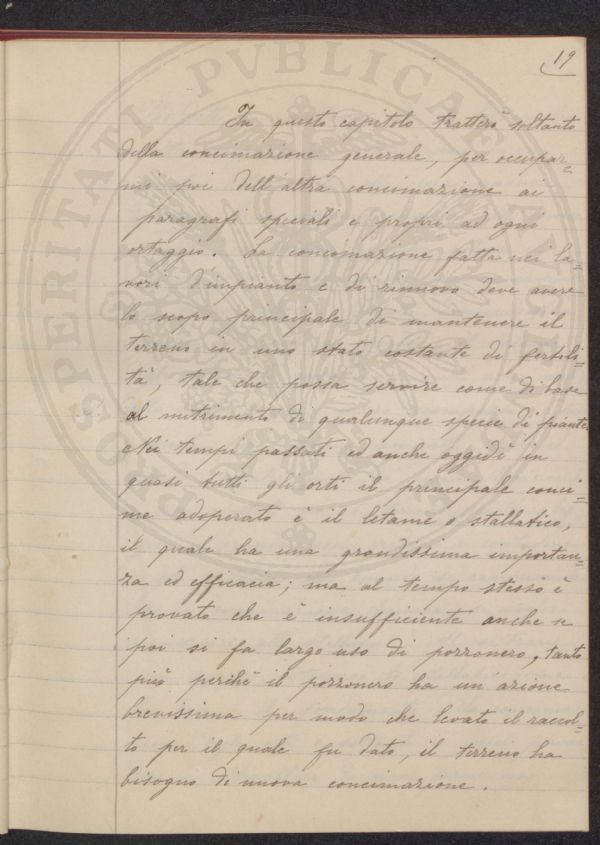 19
In questo capitolo tratterò soltanto
della concimazione generale, per occupar-
mi poi dell'altra concimazione ai
paragrafi speciali e propri ad ogni
ortaggio. La concimazione fatta nei la-
vori d'impianto e di rinnovo deve avere
lo scopo principale di mantenere il
terreno in uno stato costante di fertili-
tà, tale che possa servire come di base
al nutrimento di qualunque specie di piante.
Nei tempi passati ed anche oggidì in
quasi tutti gli orti il principale conci-
me adoperato è il letame o stallatico,
il quale ha una grandissima importan-
za ed efficacia; ma al tempo stesso è
provato che è insufficiente anche se
poi si fa largo uso di pozzonero, tanto
più perchè il pozzonero ha un'azione
brevissima per modo che levato il raccol-
to per il quale fu dato, il terreno ha
bisogno di nuova concimazione.
PROSPERITATI PVBLICAE AVGE